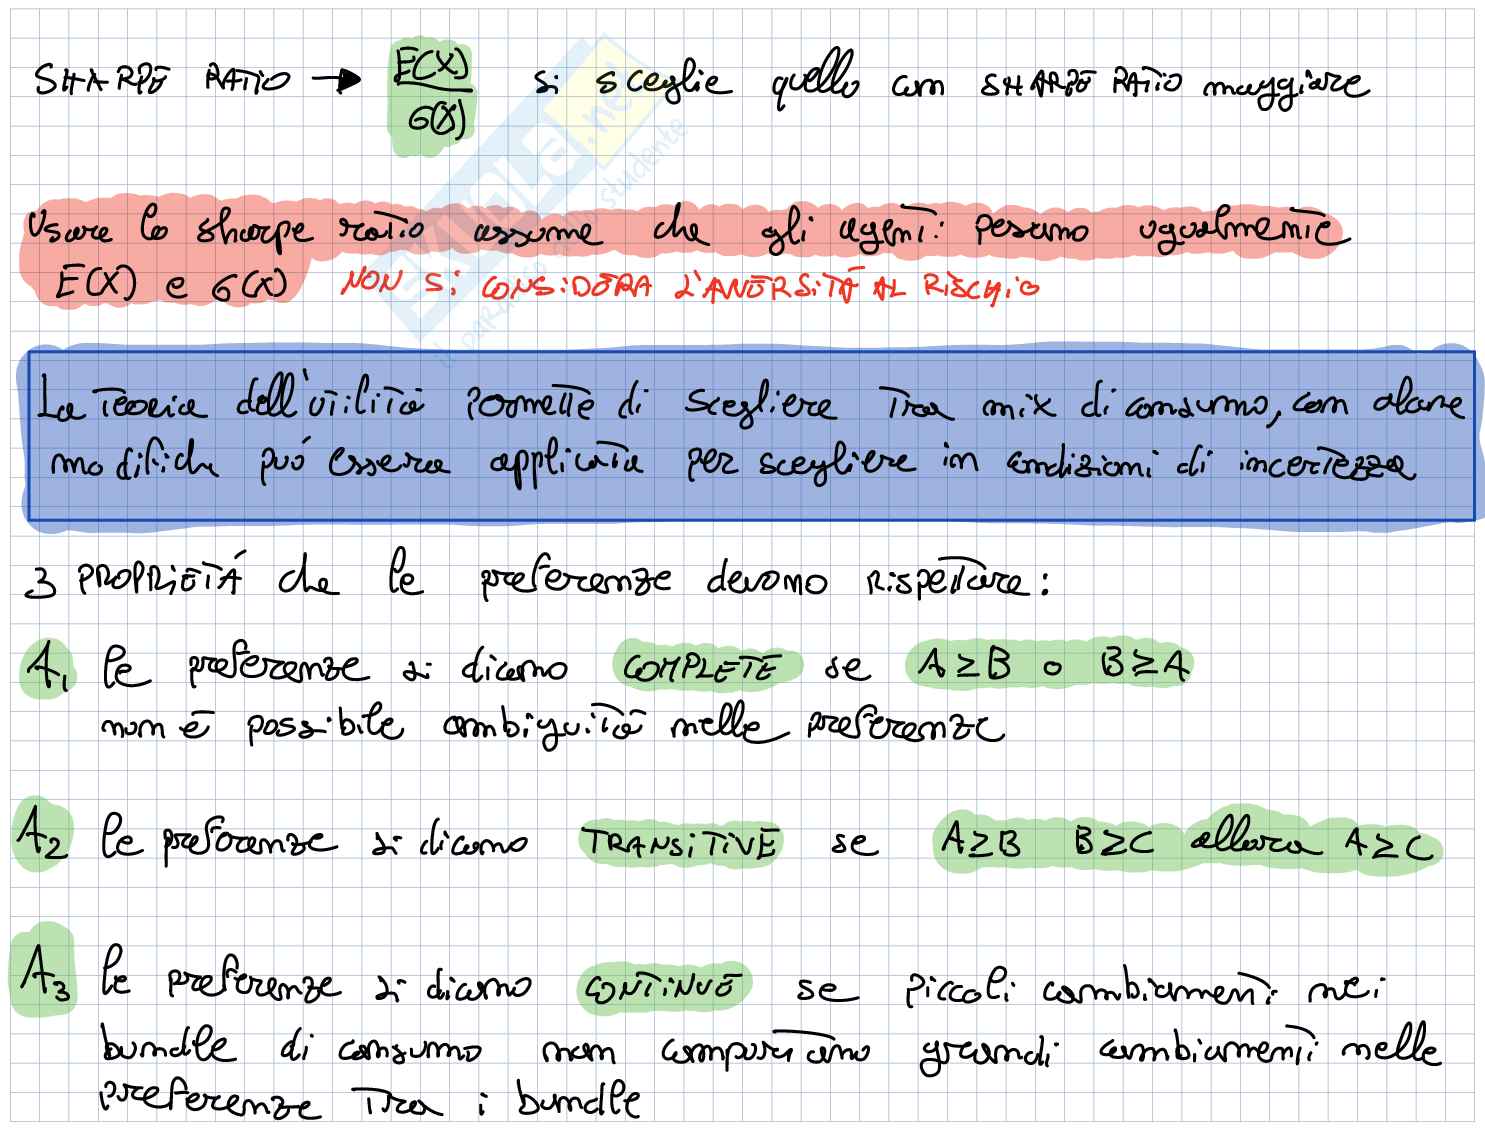 SHARPE RATIO → E(X)/σ(X) si sceglie quello con SHARPE RATIO maggiore
Usare lo sharpe ratio assume che gli agenti pesano ugualmente
E(X) e σ(X) NON Si CONSiDERA L'AVVERSiTÀ AL RiSCHiO
La Teoria dell'utilità permette di scegliere Tra mix di consumo, con alcune
modifiche può essere applicata per scegliere in condizioni di incertezza
3 PROPRiETÁ che le preferenze devono rispettare:
A1 le preferenze si dicono COMPLETE se A≥B o B≥A
non è possibile ambiguità nelle preferenze
A2 le preferenze si dicono TRANSiTiVE se A≥B B≥C allora A≥C
A3 le preferenze si dicono CONTiNUE se piccoli cambiamenti nei
bundle di consumo non comportano grandi cambiamenti nelle
preferenze Tra i bundle